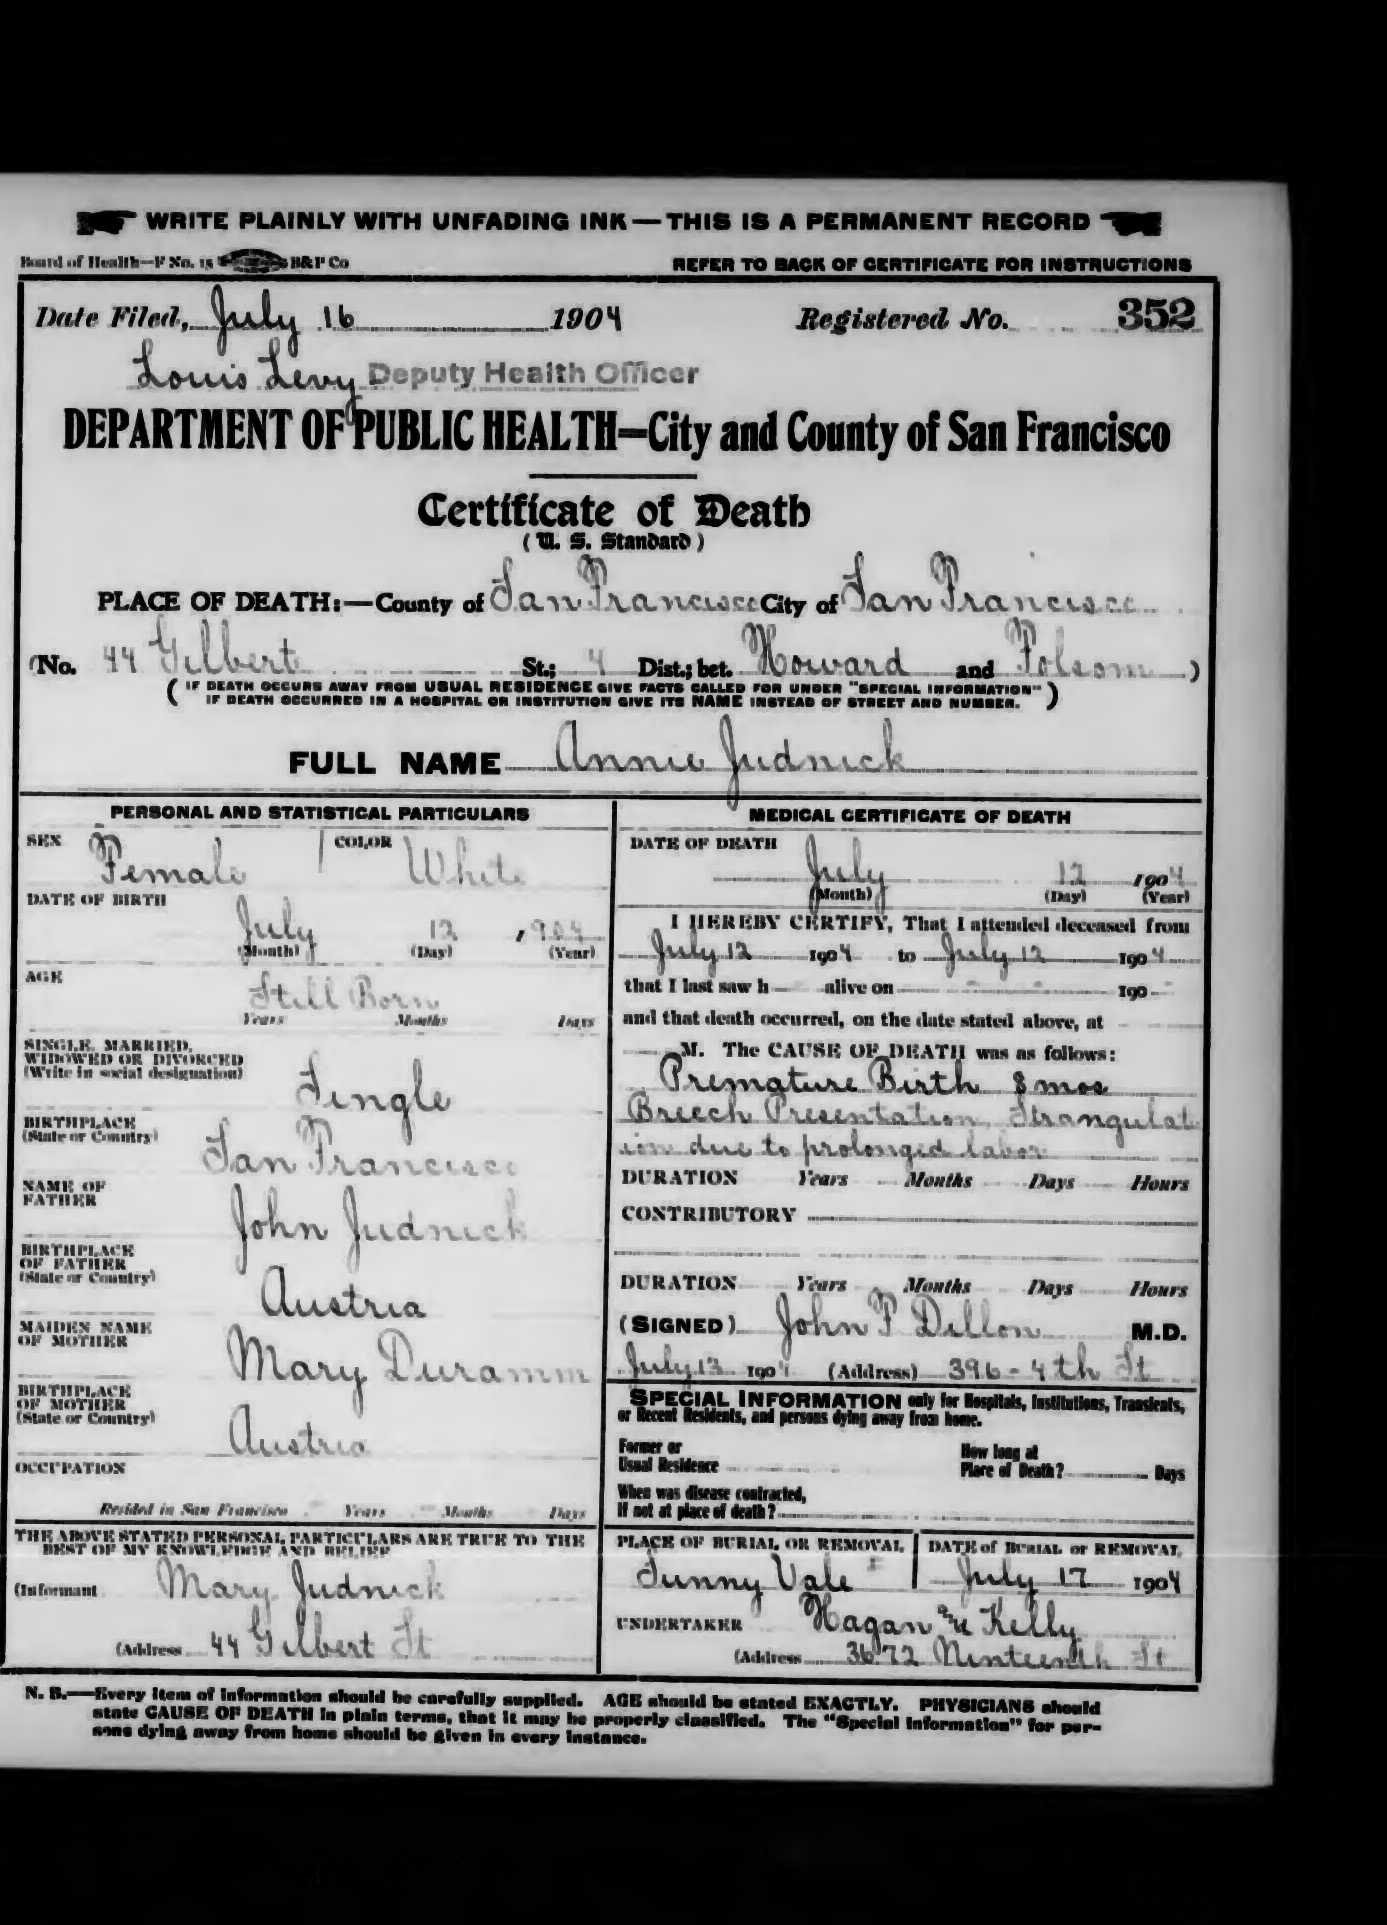 WRITE PLAINLY WITH UNFADING INK — THIS IS A PERMANENT RECORD
Board of Health—F No. 15 B&P Co REFER TO BACK OF CERTIFICATE FOR INSTRUCTIONS
Date Filed, July 16 1904 Registered No. 352
Louis Levy Deputy Health Officer
DEPARTMENT OF PUBLIC HEALTH—City and County of San Francisco
Certificate of Death
( U. S. Standard )
PLACE OF DEATH:—County of San Francisco City of San Francisco
(No. 44 Gilbert St.; 4 Dist.; bet. Howard and Folsom )
( IF DEATH OCCURS AWAY FROM USUAL RESIDENCE GIVE FACTS CALLED FOR UNDER "SPECIAL INFORMATION"
IF DEATH OCCURRED IN A HOSPITAL OR INSTITUTION GIVE ITS NAME INSTEAD OF STREET AND NUMBER. )
FULL NAME Annie Judnick
PERSONAL AND STATISTICAL PARTICULARS
SEX Female COLOR White
DATE OF BIRTH
July 12 , 904
(Month) (Day) (Year)
AGE
Still Born
Years Months Days
SINGLE, MARRIED,
WIDOWED OR DIVORCED
(Write in social designation)
Single
BIRTHPLACE
(State or Country)
San Francisco
NAME OF
FATHER
John Judnick
BIRTHPLACE
OF FATHER
(State or Country)
Austria
MAIDEN NAME
OF MOTHER
Mary Duramm
BIRTHPLACE
OF MOTHER
(State or Country)
Austria
OCCUPATION
Resided in San Francisco Years Months Days
THE ABOVE STATED PERSONAL PARTICULARS ARE TRUE TO THE
BEST OF MY KNOWLEDGE AND BELIEF
(Informant Mary Judnick
(Address 44 Gilbert St
MEDICAL CERTIFICATE OF DEATH
DATE OF DEATH
July 12 1904
(Month) (Day) (Year)
I HEREBY CERTIFY, That I attended deceased from
July 12 1904 to July 12 1904
that I last saw h alive on 190
and that death occurred, on the date stated above, at
M. The CAUSE OF DEATH was as follows:
Premature Birth 8 mos
Breech Presentation, Strangulat
ion due to prolonged labor
DURATION Years Months Days Hours
CONTRIBUTORY
DURATION Years Months Days Hours
(SIGNED) John F Dillon M.D.
July 13 1904 (Address) 396 - 4th St
SPECIAL INFORMATION only for Hospitals, Institutions, Transients,
or Recent Residents, and persons dying away from home.
Former or
Usual Residence
How long at
Place of Death? Days
When was disease contracted,
If not at place of death?
PLACE OF BURIAL OR REMOVAL
Sunny Vale
DATE of BURIAL or REMOVAL
July 17 1904
UNDERTAKER Hagan & Kelly
(Address 3672 Ninteenth St
N. B.—Every item of information should be carefully supplied. AGE should be stated EXACTLY. PHYSICIANS should
state CAUSE OF DEATH in plain terms, that it may be properly classified. The "Special Information" for per-
sons dying away from home should be given in every instance.